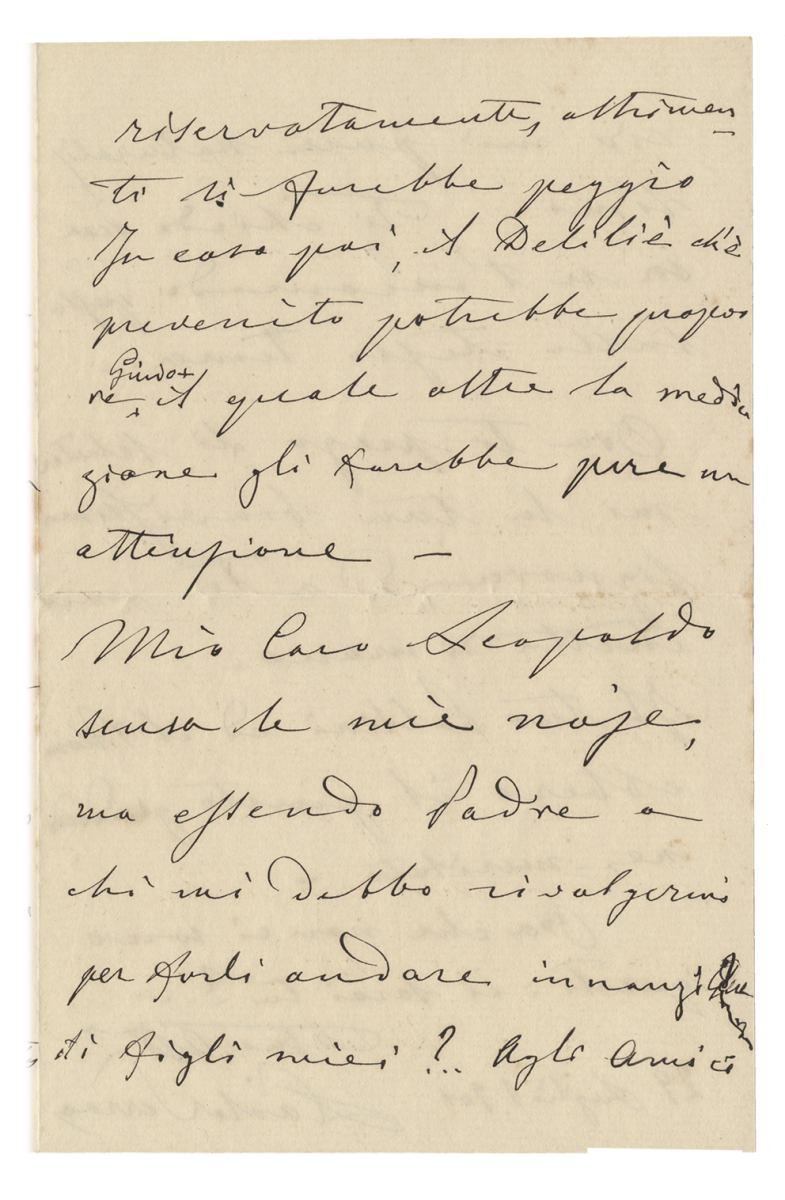 riservatamente, altrimen
ti si farebbe peggio
In caso poi, il Deliliè ch'è
prevenito potrebbe propor
Guido+
re + il quale oltre la media
zione gli farebbe pure un
attenzione —
Mio Caro Leopoldo
scusa le mie noje,
ma essendo Padre a
chi mi debbo rivolgermi
per farli andare innanzi
ti figli miei ?.. Agli Amici